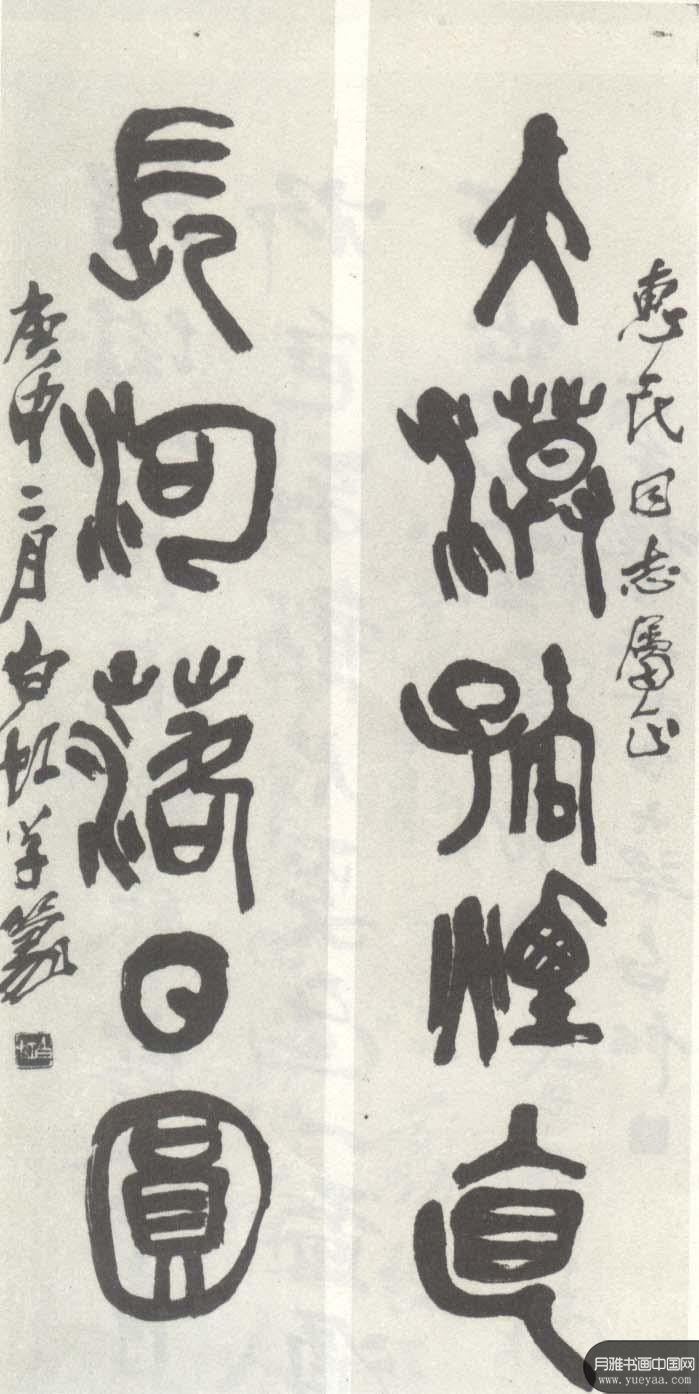 惠民同志属正
大漠孤煙直
長河落日圓
庚申二月白虹學篆
月雅书画中国网
www.yueyaa.com